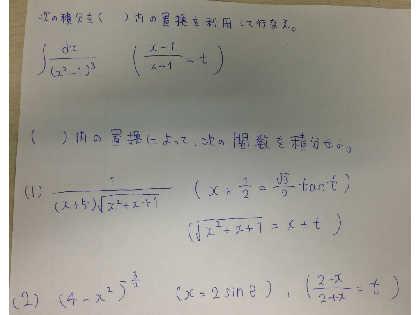 次の積分を( )内の置換を利用して行なえ。
∫ dx/(x²-1)³ ( (x-1)/(x+1) = t )
( )内の置換によって、次の関数を積分せよ。
(1) 1/((x+5)√(x²+x+1)) ( x+1/2 = √3/2 tan t )
( √(x²+x+1) = x+t )
(2) (4-x²)^(3/2) (x=2sin t), ( (2-x)/(2+x) = t )